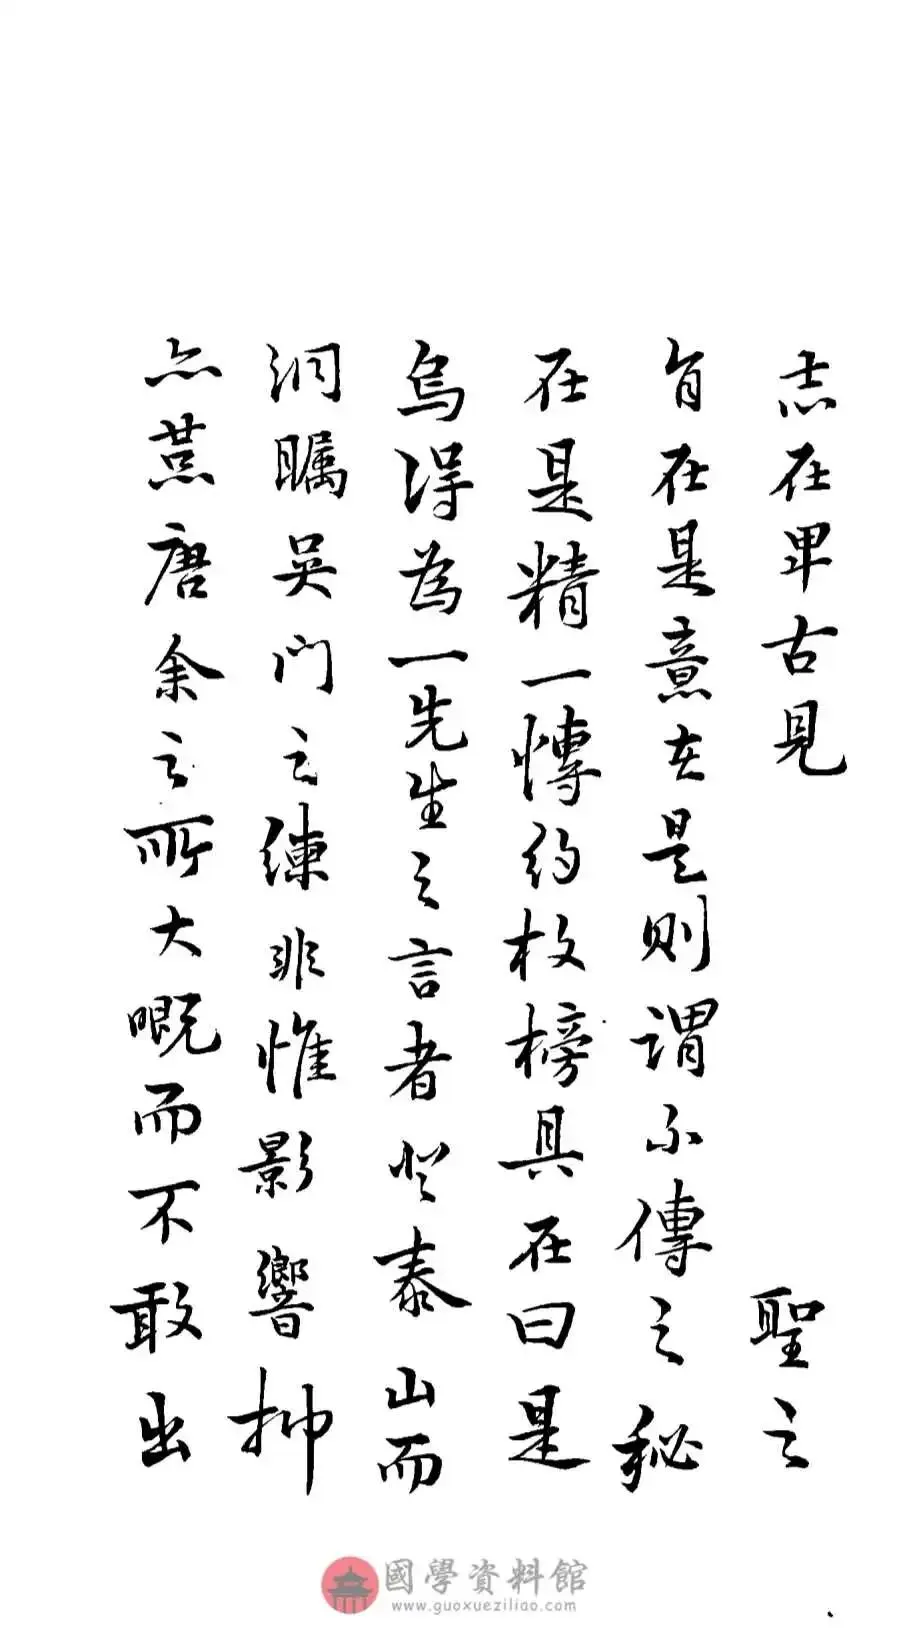 志在古見 聖之
旨在是意在是則謂不傳之秘
在是精一慱約枚榜具在曰是
烏得為一先生之言者登泰山而
洞矚吳門之練非惟影響抑
亦荒唐余之所大嘅而不敢出
國學資料館
www.guoxueziliao.com